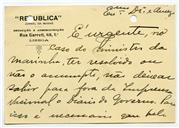 Exmo
"REPUBLICA"
Exmo Dr. e Amigo
JORNAL DA MANHÃ
REDACÇÃO E ADMINISTRAÇÃO
Rua Garrett, 48, 1.º
LISBOA
É urgente, no
caso do ministro da
Marinha, ter resolvido ou
não o assumpto, não deixar
sahir para fora da Imprensa
Nacional o Diario do Governo. Para
isso é necessario que